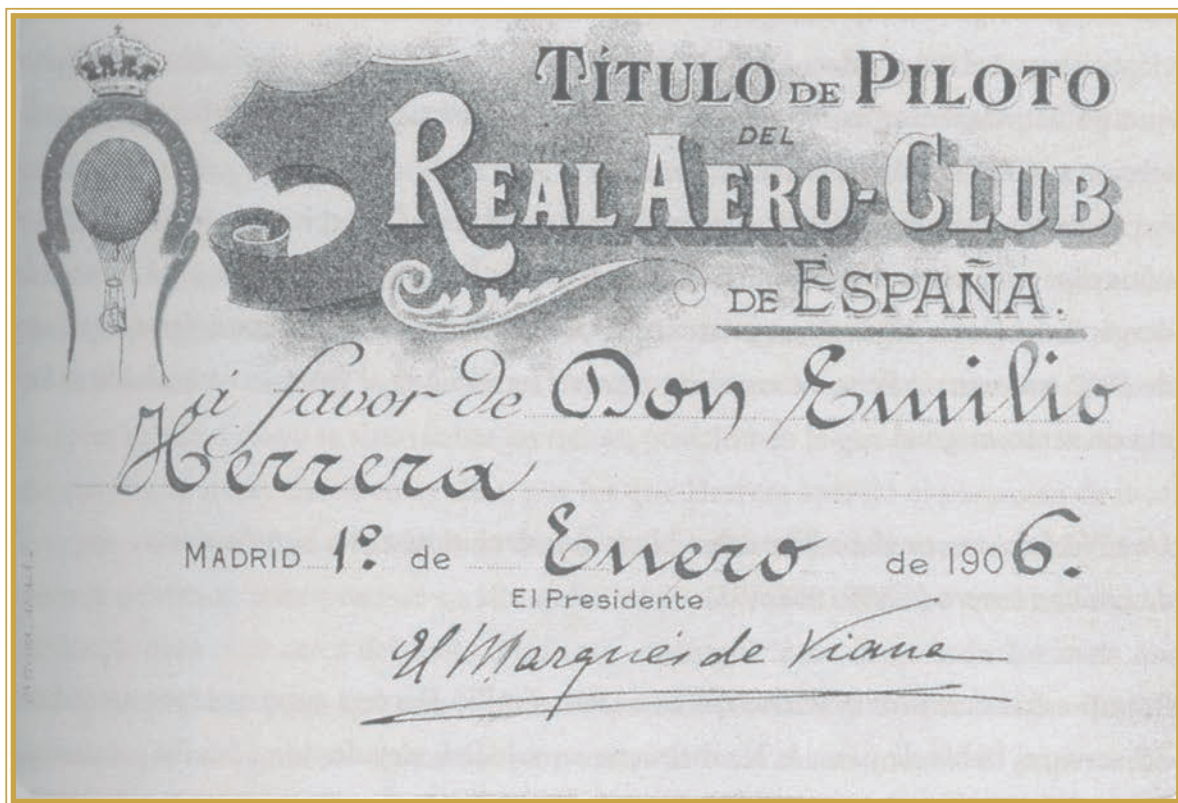 TÍTULO DE PILOTO
DEL
REAL AERO-CLUB
DE ESPAÑA.
á favor de Don Emilio
Herrera
MADRID 1º. de Enero de 1906.
El Presidente
El Marqués de Viana